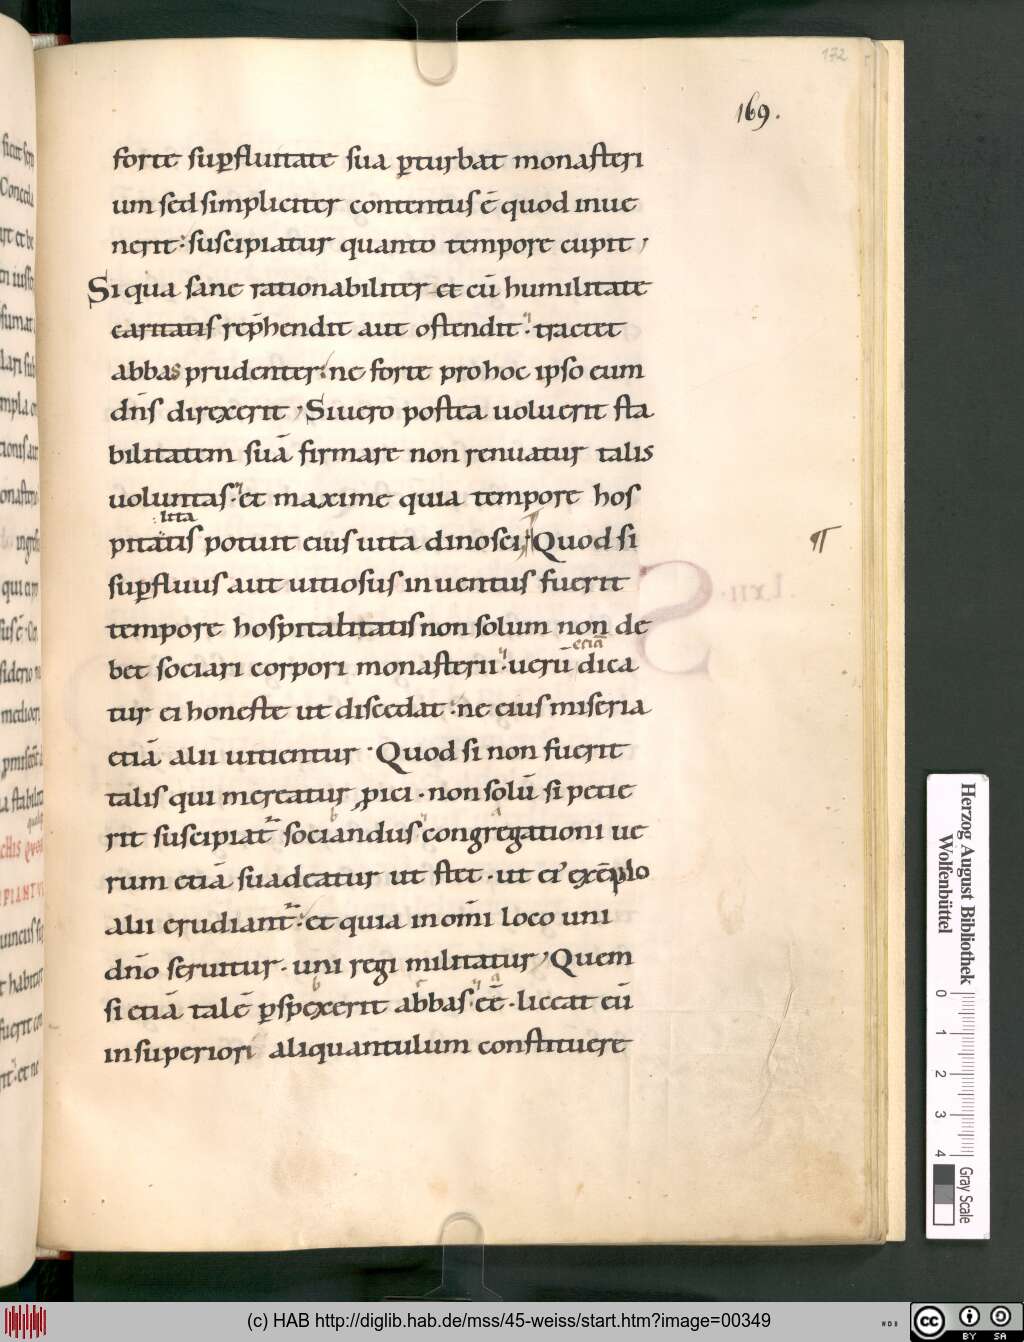 172
169.
forte sup̱fluitate sua p̱turbat monasteri
um sed simpliciter contentus ē quod inue
nerit: suscipiatur quanto tempore cupit,
Si qua sane rationabiliter et cū humilitate
caritatis rep̄hendit aut ostendit: tractet
abbas prudenter: ne forte pro hoc ipso eum
dn̄s direxerit, Si uero postea uoluerit sta
bilitatem suā firmare non renuatur talis
uoluntas. et maxime quia tempore hos
:lita
pitatis potuit eius uita dinosci; Quod si
¶
sup̱fluus aut uitiosus inuentus fuerit
tempore hospitalitatis non solum non de
bet sociari corpori monasterii. uerū dica
etiā
tur ei honeste ut discedat: ne eius miseria
etiā alii uitientur. Quod si non fuerit
talis qui mereatur ꝓici. non solū si petie
rit suscipiat sociandus congregationi ue
rum etiā suadeatur ut stet. ut ei' exēplo
alii erudiant: et quia in om̄i loco uni
dn̄o seruitur. uni regi militatur, Quem
si etiā talē p̱spexerit abbas eē. liceat eū
in superiori aliquantulum constituere
Herzog August Bibliothek
Wolfenbüttel
0 1 2 3 4
Gray Scale
(c) HAB http://diglib.hab.de/mss/45-weiss/start.htm?image=00349
cc BY SA